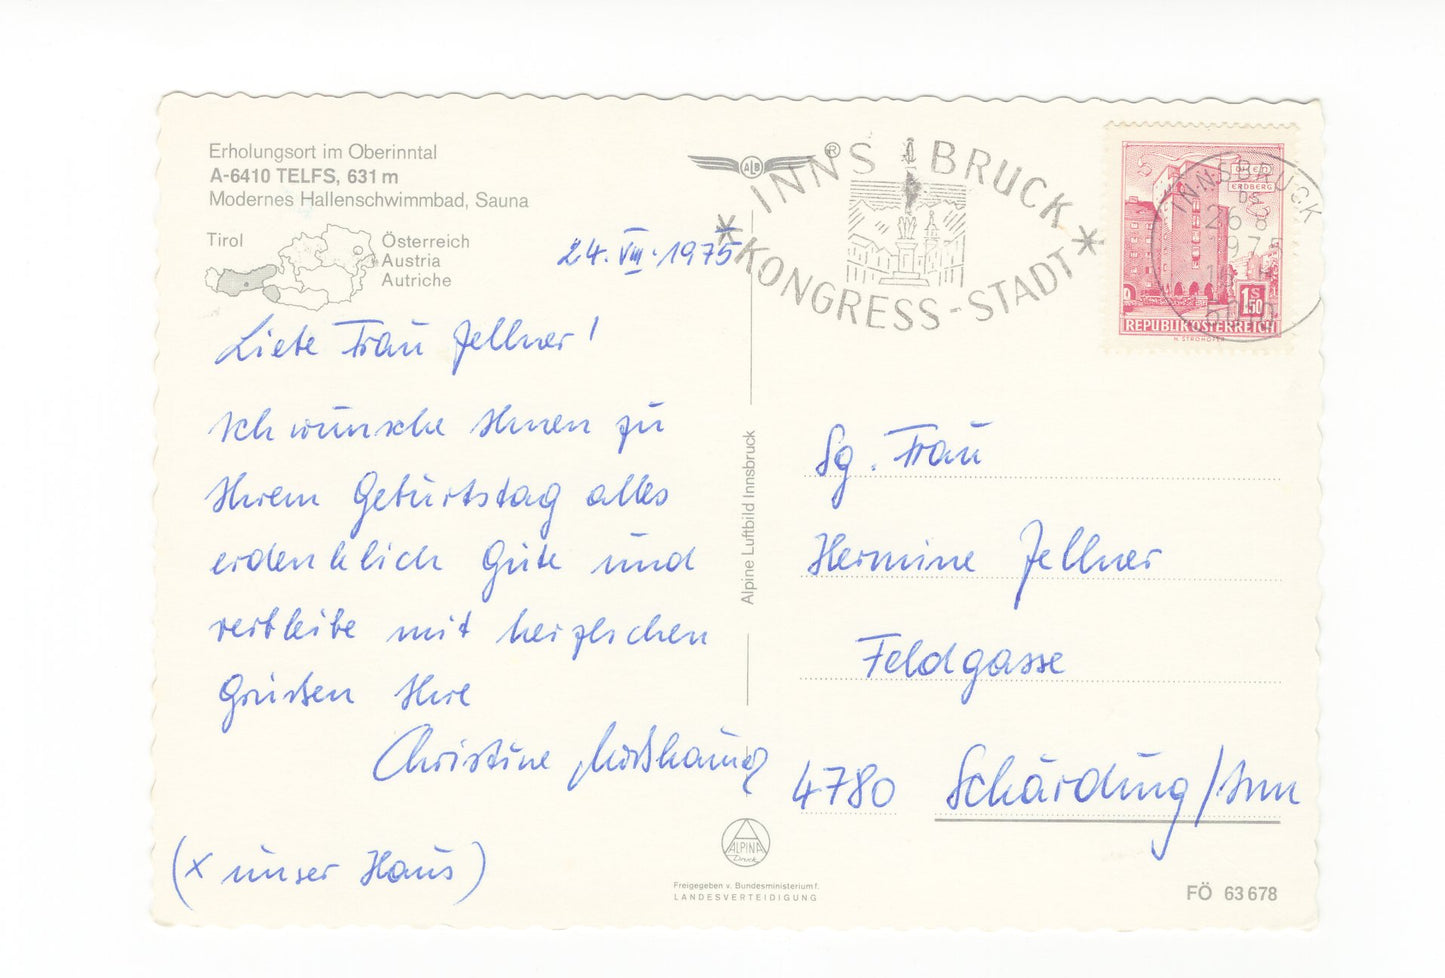 Erholungsort im Oberinntal
A-6410 TELFS, 631 m
Modernes Hallenschwimmbad, Sauna
Tirol
Österreich
Austria
Autriche
24. VIII. 1975
Liebe Frau Zellner!
Ich wünsche Ihnen zu
Ihrem Geburtstag alles
erdenklich Gute und
verbleibe mit herzlichen
Grüßen Ihre
Christine
(x unser Haus)
ALB
®
INNSBRUCK
KONGRESS-STADT
ERDBERG
1 S
50
REPUBLIK ÖSTERREICH
H. STROHOFER
INNSBRUCK
26 8
1975
Alpine Luftbild Innsbruck
Sg. Frau
Hermine Zellner
Feldgasse
4780 Schärding/Inn
ALPINA
Druck
Freigegeben v. Bundesministerium f.
LANDESVERTEIDIGUNG
FÖ 63 678